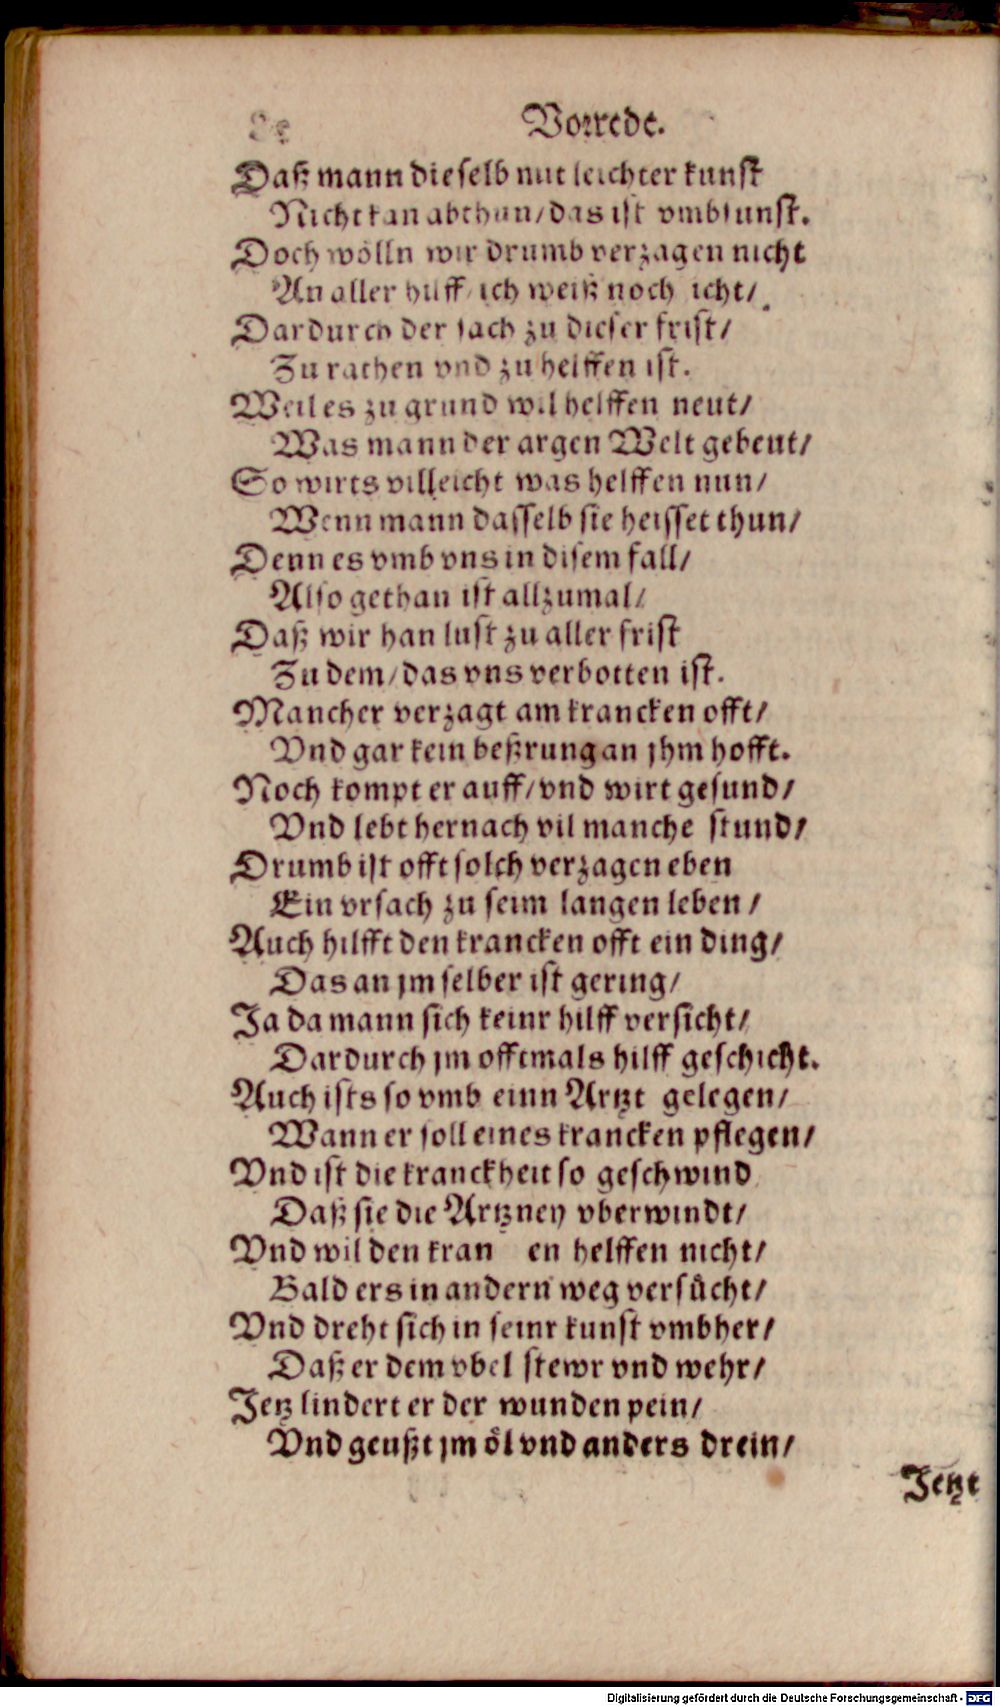 Vorrede.
Daß mann dieselb mit leichter kunst
Nicht kan abthun/das ist vmbsunst.
Doch wölln wir drumb verzagen nicht
An aller hilff/ich weiß noch icht/
Dardurch der sach zu dieser frist/
Zu rathen vnd zu helffen ist.
Weil es zu grund wil helffen neut/
Was mann der argen Welt gebeut/
So wirts villeicht was helffen nun/
Wenn mann dasselb sie heisset thun/
Denn es vmb vns in disem fall/
Also gethan ist allzumal/
Daß wir han lust zu aller frist
Zu dem/das vns verbotten ist.
Mancher verzagt am krancken offt/
Vnd gar kein beßrung an jhm hofft.
Noch kompt er auff/vnd wirt gesund/
Vnd lebt hernach vil manche stund/
Drumb ist offt solch verzagen eben
Ein vrsach zu seim langen leben/
Auch hilfft den krancken offt ein ding/
Das an jm selber ist gering/
Ja da mann sich keinr hilff versicht/
Dardurch jm offtmals hilff geschicht.
Auch ists so vmb einn Artzt gelegen/
Wann er soll eines krancken pflegen/
Vnd ist die kranckheit so geschwind
Daß sie die Artzney vberwindt/
Vnd wil den kran en helffen nicht/
Bald ers in andern weg versůcht/
Vnd dreht sich in seinr kunst vmbher/
Daß er dem vbel stewr vnd wehr/
Jetz lindert er der wunden pein/
Vnd geußt jm öl vnd anders drein/
Jetzt
Digitalisierung gefördert durch die Deutsche Forschungsgemeinschaft - DFG